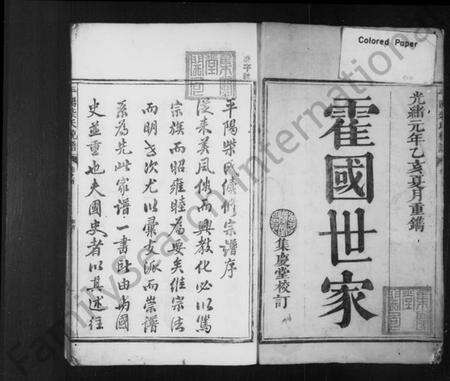 Colored Paper
光緒元年乙亥夏月重鐫
霍國世家
集慶堂校訂
平陽柴氏續修宗譜序
從來美風俗而興教化必以篤
宗族而昭雍睦為要矣維宗法
而明世次尤以彙支派而崇譜
系為先此家譜一書所由與國
史並重也夫國史者以其述往
FamilySearch